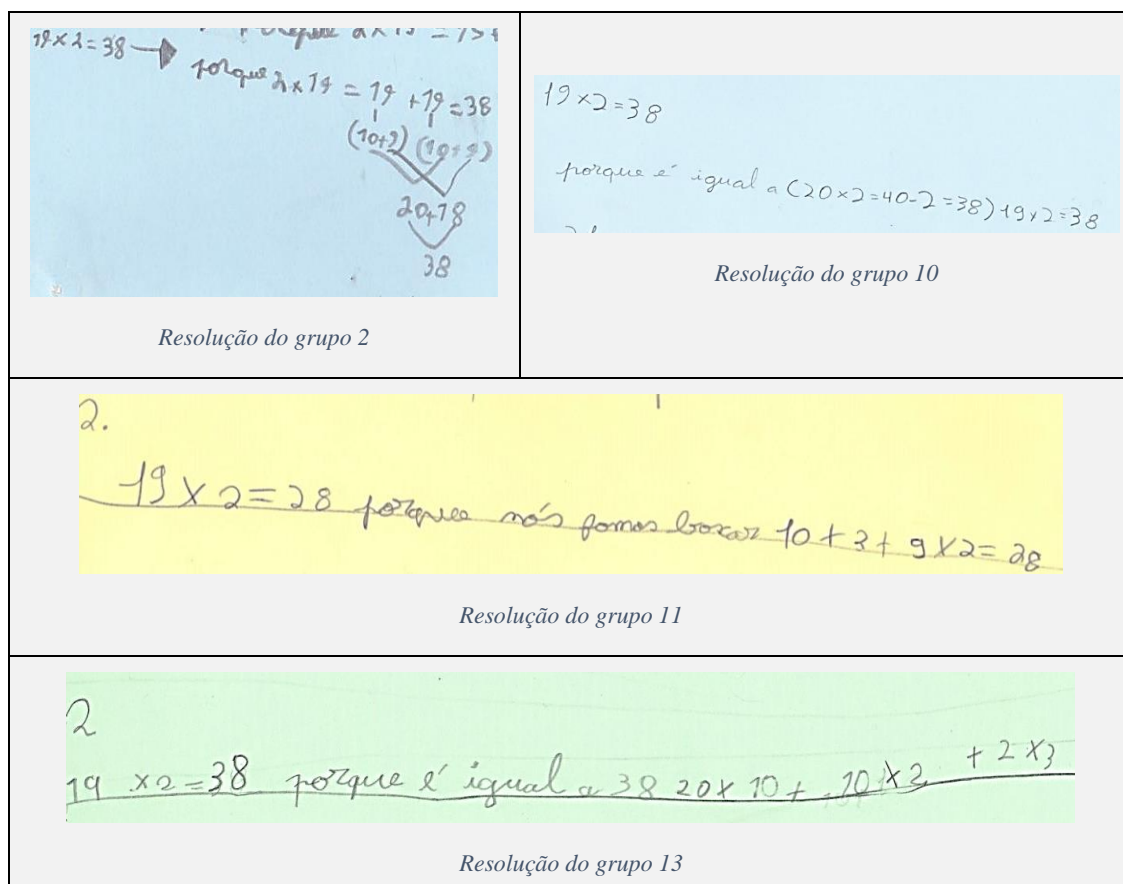 19×2=38 → porque 2×19 = 19 +19 =38
(10+9) (10+9)
20+18
38
Resolução do grupo 2
19×2=38
porque é igual a (20×2=40-2=38) 19×2=38
Resolução do grupo 10
2.
19×2=28 porque nós fomos 10+3+9×2=28
Resolução do grupo 11
2
19 ×2=38 porque é igual a 38 20×10+ 10×2 +2×3
Resolução do grupo 13